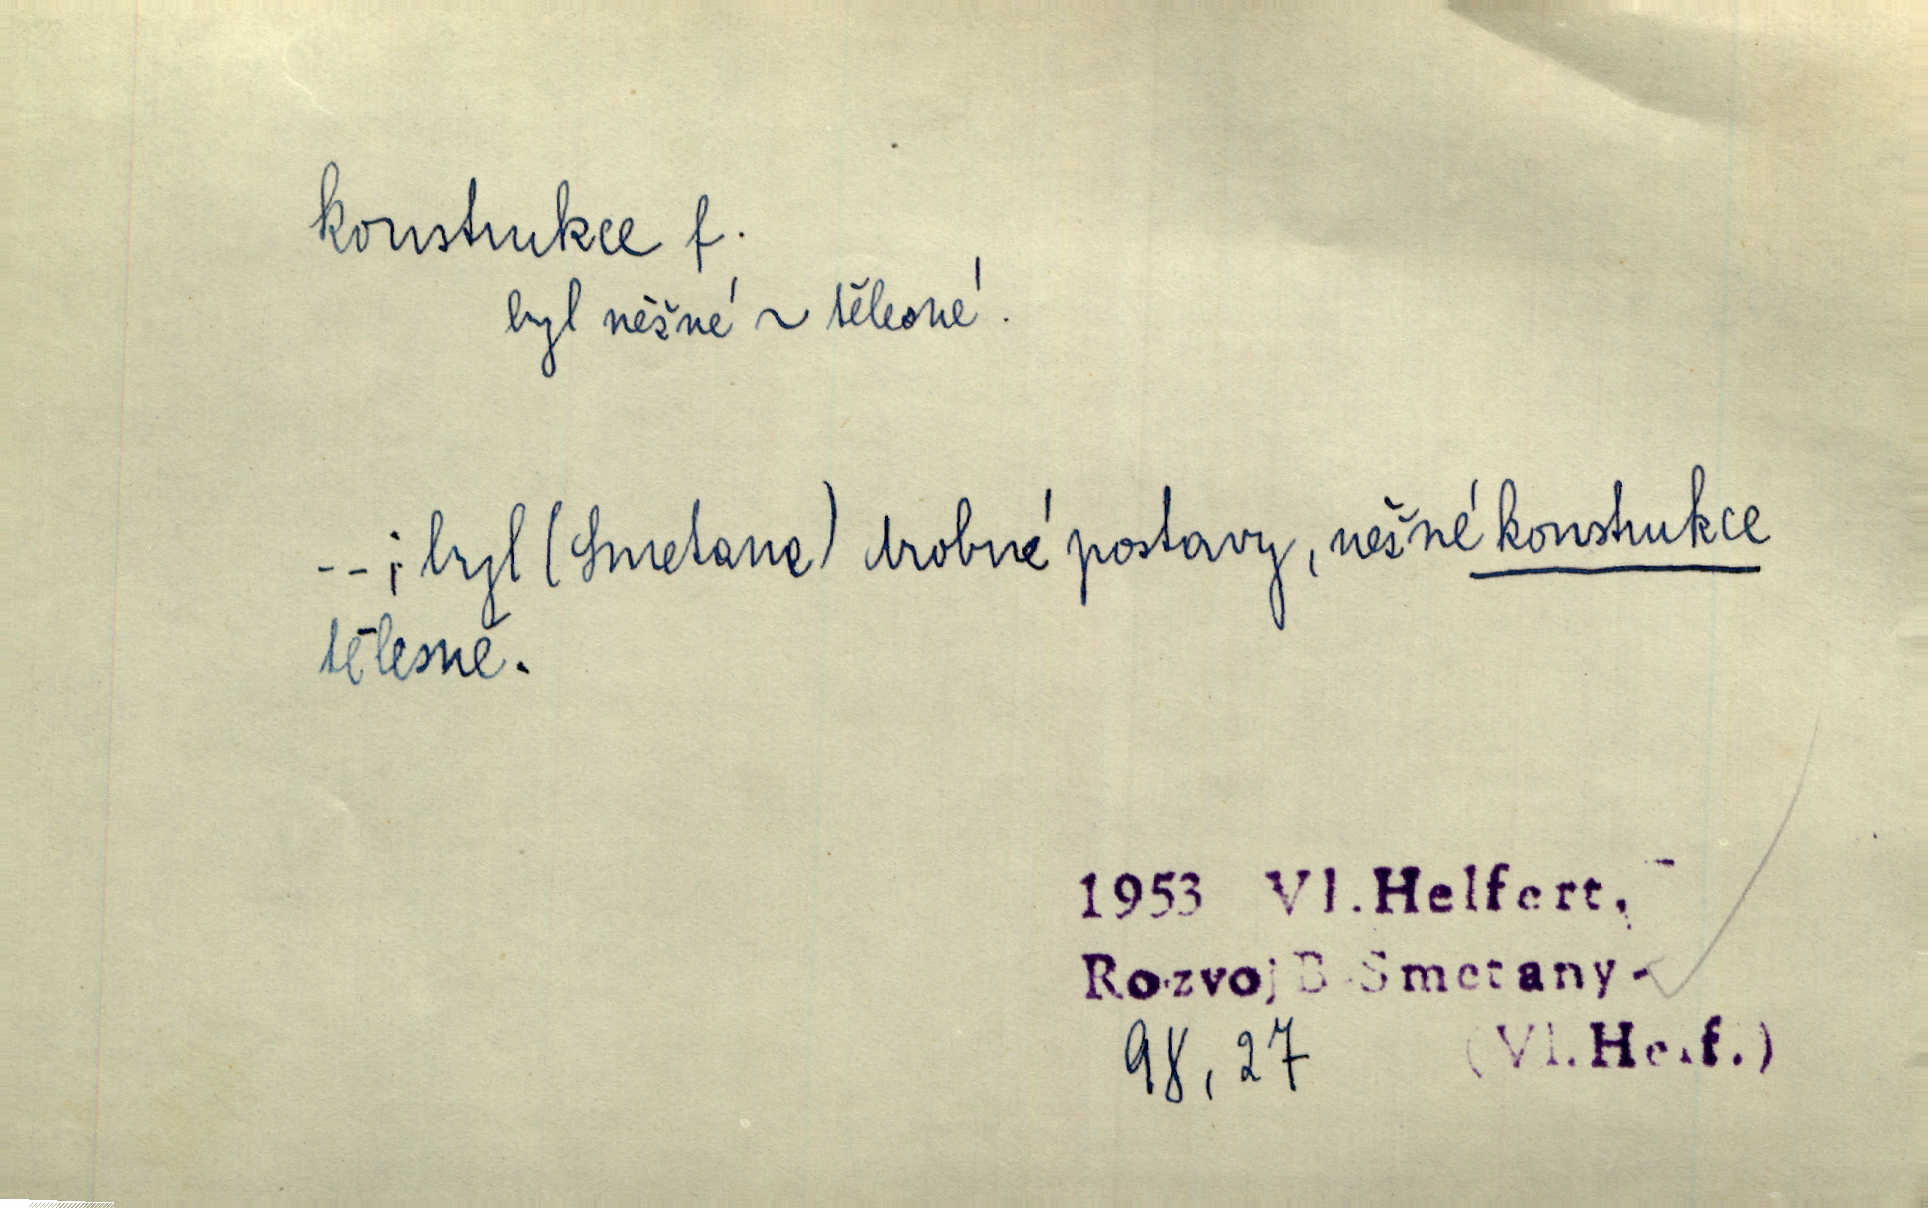 konstrukce f.
byl něžné ~ tělesné.
--; byl (Smetana) drobné postavy, něžné konstrukce
tělesné.
1953 Vl. Helfert,
Rozvoj B. Smetany
98, 27 (Vl. Helf.)